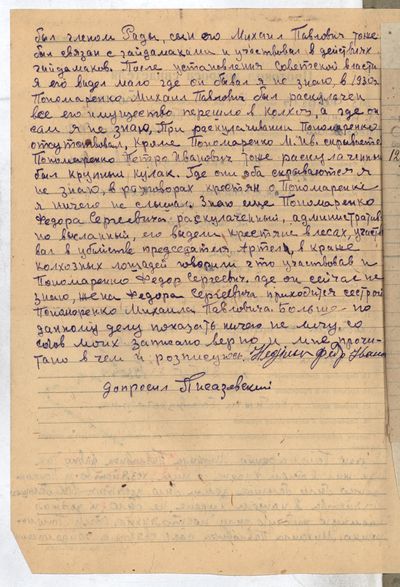 был членом Рады, сын его Михаил Павлович тоже
был связан с гайдамаками и участвовал в действиях
гайдамаков. После установления Советской власти
я его видел мало где он бывал я не знаю в 1930г
Пономаренко Михаил Павлович был раскулачен
все его имущество перешло в колхоз, а где он
сам я не знаю, При раскулачивании Пономаренко
отсутствовал, Кроме Пономаренко М.П. скрывается
Пономаренко Петро Иванович тоже раскулаченный
был крупный кулак. Где они оба скрываются я
не знаю, в разговорах крестян о Пономаренке
я ничего не слышал. Знаю еще Пономаренко
Федора Сергеевича - раскулаченный, административ
но высланный его видели крестяне в лесах, участво
вал в убийстве председателя Артели, в краже
колхозных лошадей говорили что участвовал и
Пономаренко Федор Сергеевич, где он сейчас не
знаю, жена Федора Сергеевича приходится сестрой
Пономаренко Михаила Павловича. Больше по
данному делу показать ничего не могу, со
слов моих записано верно и мне прочи-
тано в чем и росписуюсь.
допросил